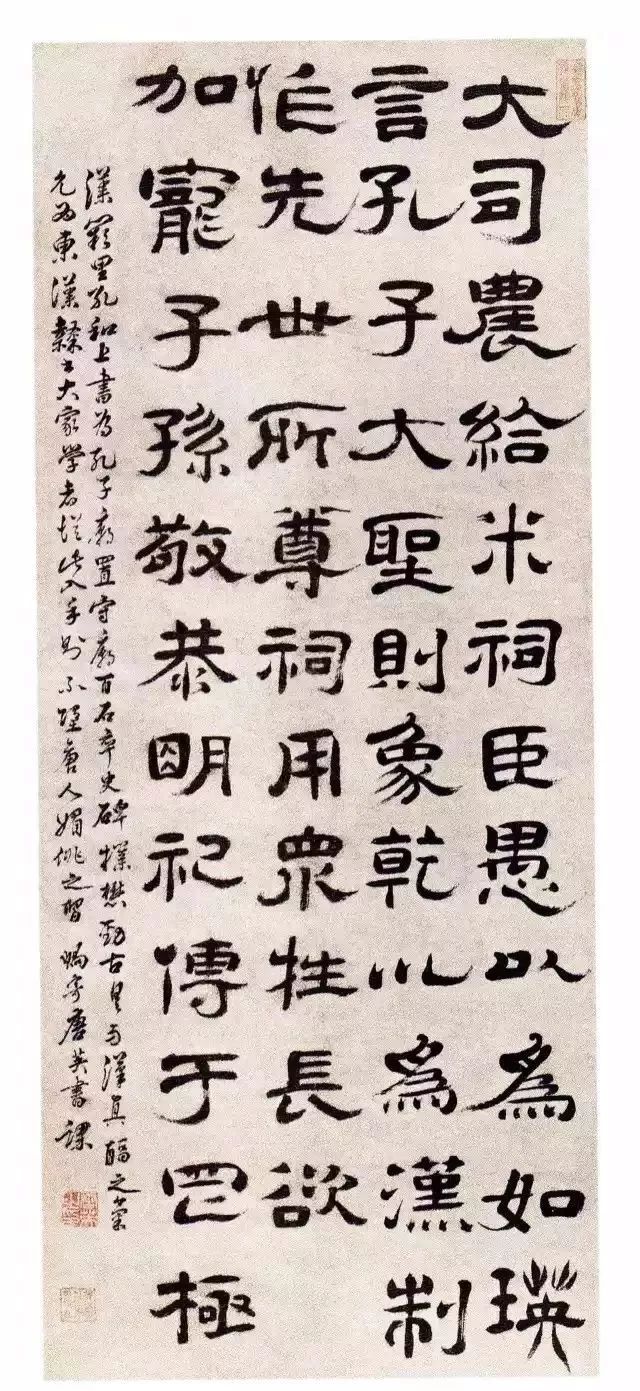 大司農給米祠臣愚以為如瑛
言孔子大聖則象乾以為漢制
作先世所尊祠用眾牲長欲
加寵子孫敬恭明祀傳于罔極
漢闕里孔和上書為孔子廟置守廟百石卒史碑樸懋勁古漢真之
允為東漢隸書大家學者從此入手則不墮唐人媚佻之習 蝸寄唐英書課